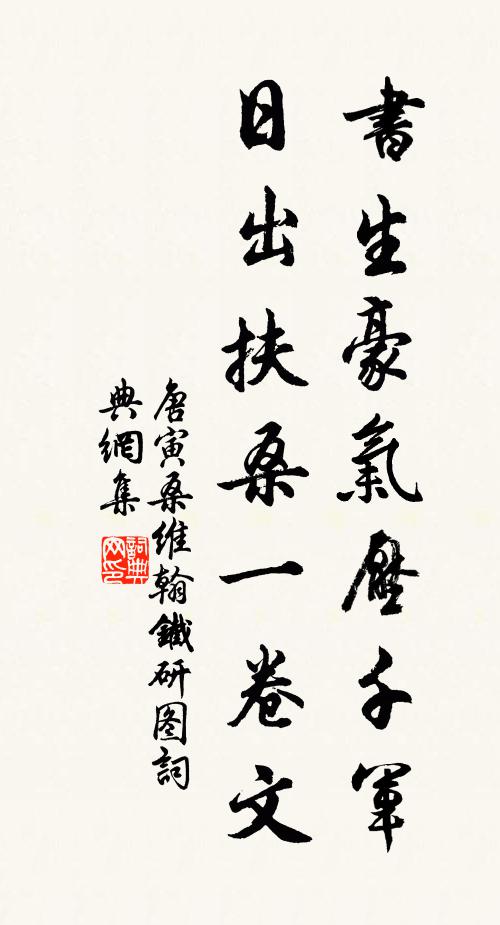 書生豪氣壓千軍
日出扶桑一卷文
唐寅桑維翰鐵研图詞
典網集
詞典
网印